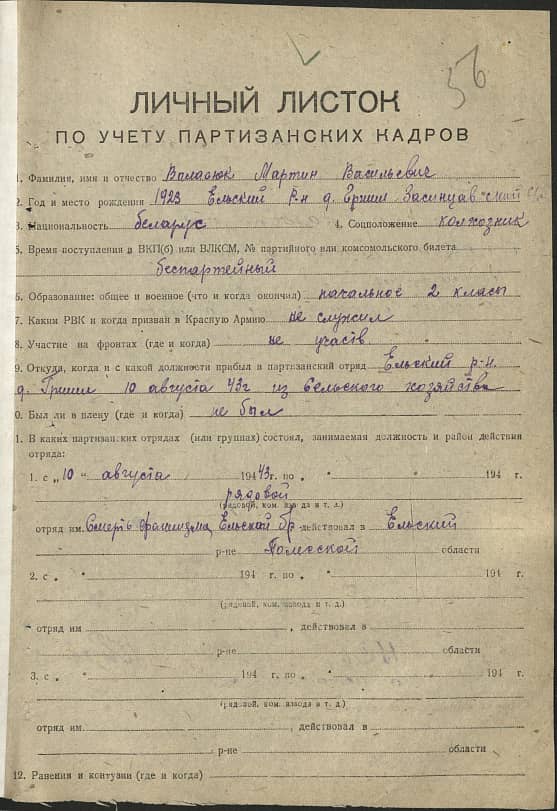 56
ЛИЧНЫЙ ЛИСТОК
ПО УЧЕТУ ПАРТИЗАНСКИХ КАДРОВ
1. Фамилия, имя и отчество Мартин Васильевич
2. Год и место рождения 1923 Ельский р-н д.
3. Национальность беларус 4. Соцположение колхозник
5. Время поступления в ВКП(б) или ВЛКСМ, № партийного или комсомольского билета
беспартейный
6. Образование: общее и военное (что и когда окончил) начальное 2 класы
7. Каким РВК и когда призван в Красную Армию не служил
8. Участие на фронтах (где и когда) не участв
9. Откуда, когда и с какой должности прибыл в партизанский отряд Ельский р-н.
д. 10 августа 43г из Сельского хозяйства
0. Был ли в плену (где и когда) не был
1. В каких партизанских отрядах (или группах) состоял, занимаемая должность и район действия
отряда:
1. с „10 " августа 194 43г. по „ " 194 г.
рядовой
(рядовой, ком. взвода и т. д.)
отряд им. Смерть фашизма Ельской бр. действовал в Ельский
р-не Полесской области
2. с „ " 194 г. по „ " 194 г.
(рядовой, ком. взвода и т. д.)
отряд им , действовал в
р-не области
3. с „ " 194 г. по „ " 194 г.
(рядовой, ком. взвода и т. д.)
отряд им. , действовал в
р-не области
12. Ранения и контузии (где и когда)